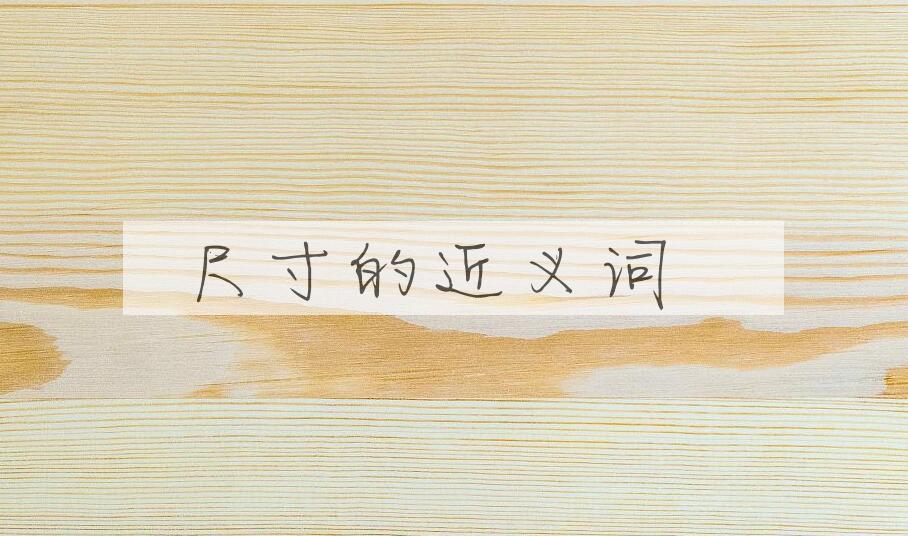 尺寸的近义词